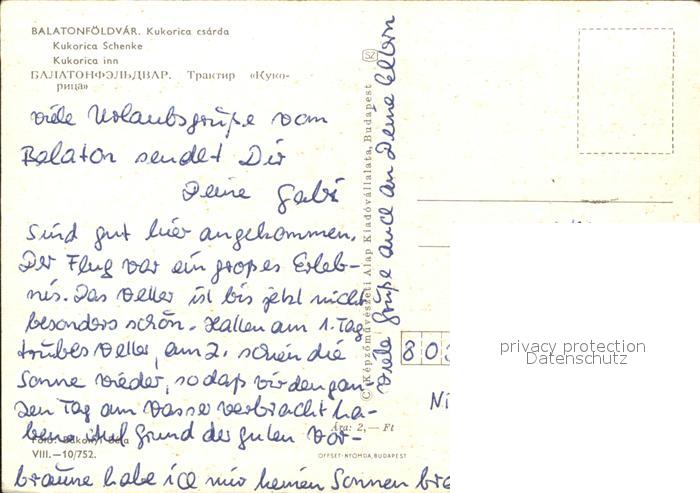 BALATONFÖLDVÁR. Kukorica csárda
Kukorica Schenke
Kukorica inn
БАЛАТОНФЭЛЬДВАР. Трактир «Куко-
рица»
viele Urlaubsgrüße vom
Balaton sendet Dir
Deine Gabi
Sind gut hier angekommen.
Der Flug war ein großes Erleb-
nis. Das Wetter ist bis jetzt nicht
besonders schön. Hatten am 1. Tag
trübes Wetter, am 2. schien die
Sonne wieder, so daß wir den gan-
zen Tag am Wasser verbracht ha-
ben. Auf Grund der guten Vor-
bräune habe ich mir keinen Sonnen
Foto: Bakonyi Béla
VIII.—10/752.
Ára: 2,— Ft
OFFSET-NYOMDA, BUDAPEST
© Képzőművészeti Alap Kiadóvállalata, Budapest
SZ
Viele Grüße auch an Deine Eltern
80
Ni
privacy protection
Datenschutz